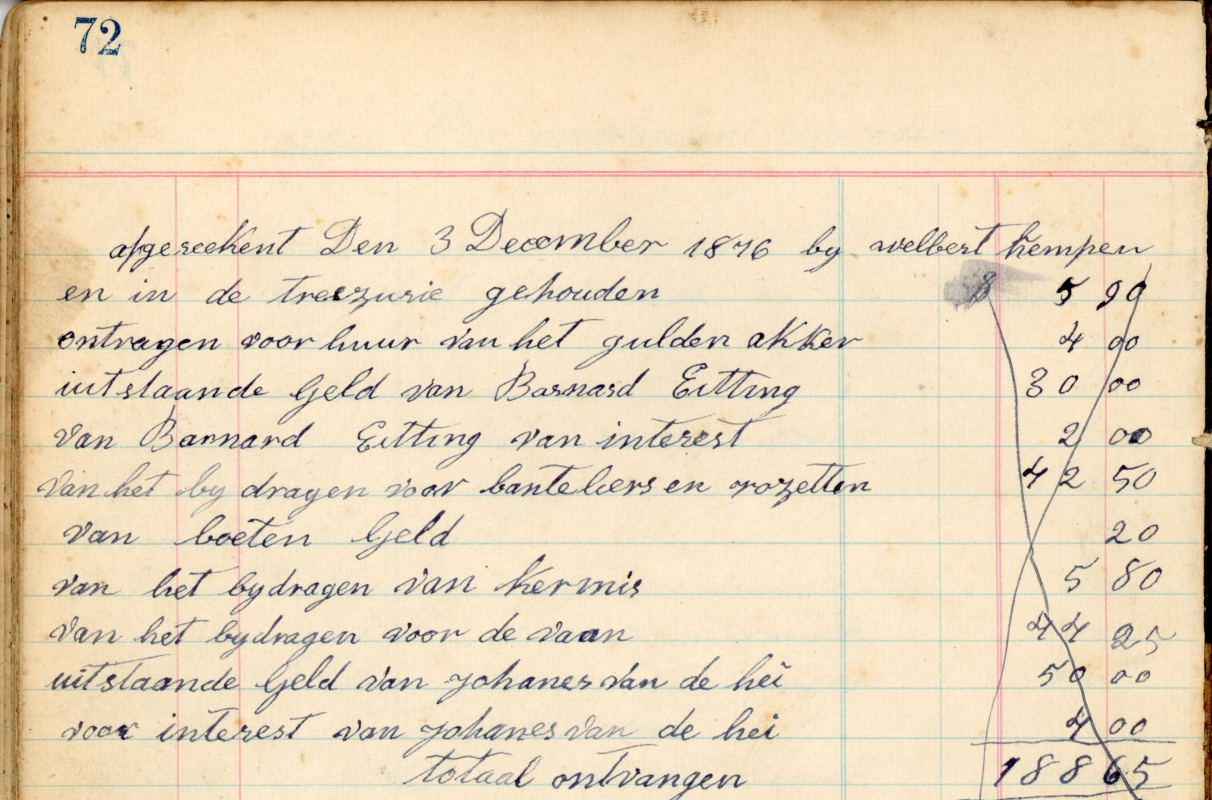 72
afgereekent Den 3 December 1876 by welbert kempen
en in de treezurie gehouden 5 90
ontragen voor huur van het gulden akker 4 00
uitstaande Geld van Barnard Eitting 30 00
van Barnard Eitting van interest 2 00
van het by dragen voor banteliers en rozetten 42 50
van boeten Geld 20
van het bydragen van kermis 5 80
van het bydragen voor de vaan 44 25
uitstaande Geld van Johanes van de hei 50 00
voor interest van Johanes van de hei 4 00
totaal ontvangen 188 65